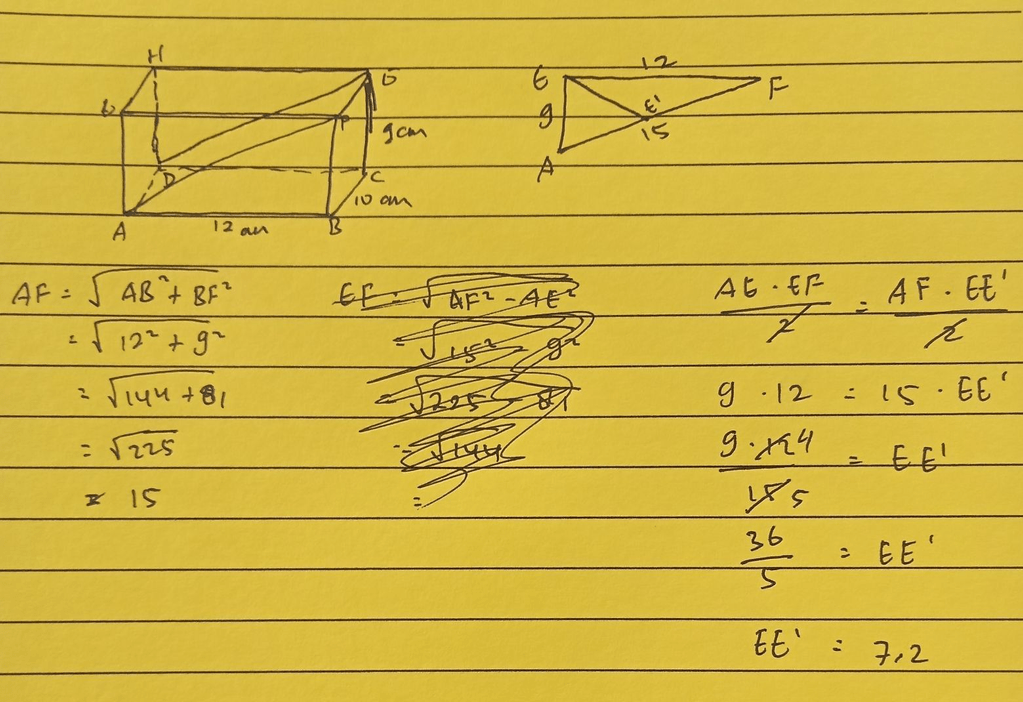 H
G
E
F
9cm
D
C
10 cm
A
12 cm
B
E
12
F
9
E'
15
A
AF = √AB² + BF²
= √12² + 9²
= √144 + 81
= √225
= 15
EF = √AF² - AE²
= √15² - 9²
= √225 - 81
= √144
=
AE · EF / 2 = AF · EE' / 2
9 · 12 = 15 · EE'
9 · 12 4 / 15 5 = EE'
36 / 5 = EE'
EE' = 7,2